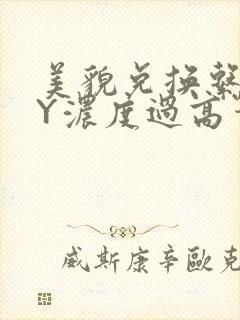 美貌兑换繫
Y濃度過高
威斯康辛歐克